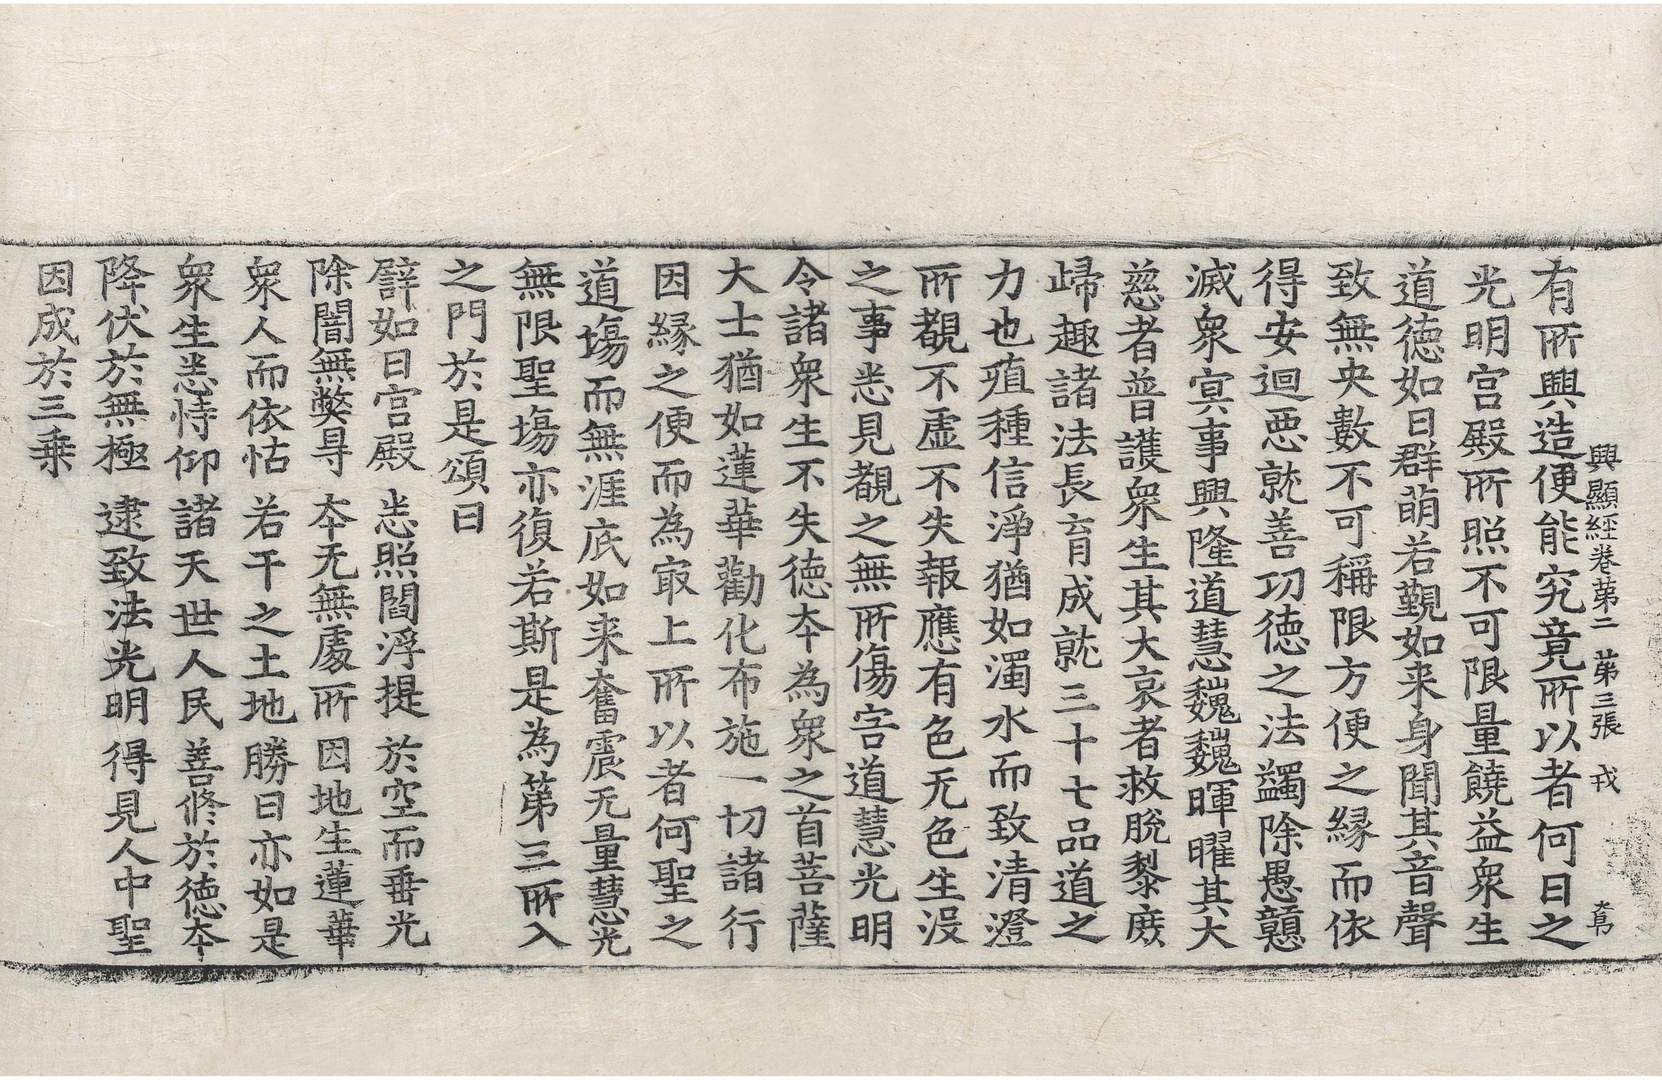 興顯經卷第二　第三張　戎
有所興造便能究竟所以者何日之
光明宮殿所照不可限量饒益衆生
道德如日群萌若覲如来身聞其音聲
致無央數不可稱限方便之緣而依
得安迴惡就善功德之法蠲除愚戆
滅衆冥事興隆道慧巍巍暉曜其大
慈者普護衆生其大哀者救脫黎庶
歸趣諸法長育成就三十七品道之
力也殖種信淨猶如濁水而致清澄
所覩不虛不失報應有色无色生沒
之事悉見觀之無所傷害道慧光明
令諸衆生不失德本為衆之首菩薩
大士猶如蓮華勸化布施一切諸行
因緣之便而為㝡上所以者何聖之
道場而無涯底如来奮震无量慧光
無限聖場亦復若斯是為第三所入
之門於是頌曰
譬如日宮殿　悉照閻浮提　於空而垂光
除闇無弊㝵　本无無處所　因地生蓮華
衆人而依怙　若干之土地　勝日亦如是
衆生悉恃仰　諸天世人民　善修於德本
降伏於無極　逮致法光明　得見人中聖
因成於三乗